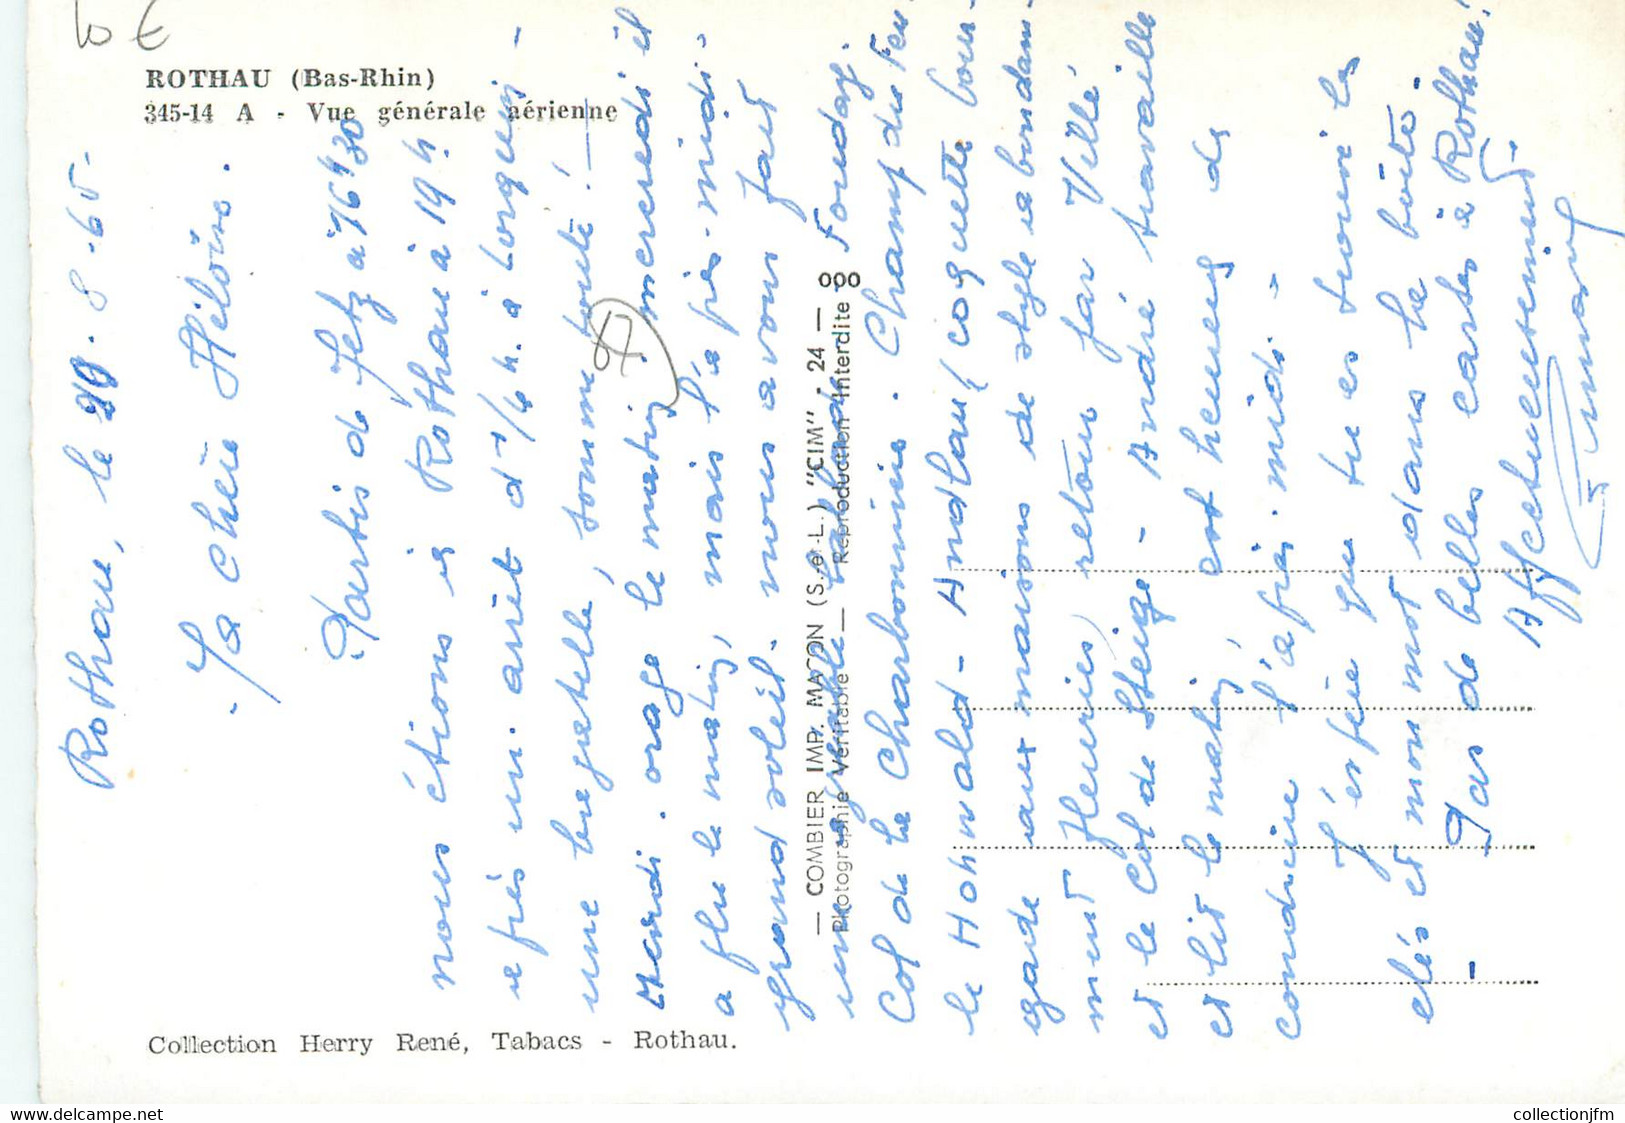 10 €
ROTHAU (Bas-Rhin)
345-14 A - Vue générale aérienne
Rothau, le 19.8.65-
Ma chère Héloïse.
Partis de Metz à 16h30
nous étions à Rothau à 19h.
après un arrêt d'1/4 h. à Lorquin -
une bagatelle, somme toute! -
Mardi. orage le matin, mercredi il
a plu le matin, mais l'après-midi.
grand soleil. nous avons fait
une agréable balade Fouday.
Col de la Charbonnière. Champ du Feu.
le Hohwald - Andlau (coquette bour-
gade aux maisons de style abondam-
ment fleuries) retour par Villé
et le Col de Steige - André travaille
et lit le matin, est heureux de
conduire l'après-midi -
J'espère que tu as trouvé les
clés et mon mot dans la boîte.
Pas de belles cartes à Rothau!
Affectueusement.
— COMBIER IMP. MACON (S.-et-L.) "CIM" - 24 —
Photographie Véritable — Reproduction Interdite
Collection Herry René, Tabacs - Rothau.
www.delcampe.net
collectionjfm